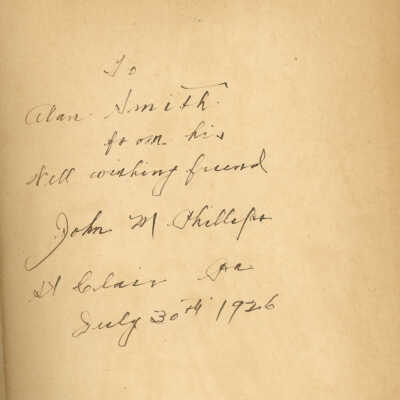 To
Alan Smith
from his
Well wishing friend
John M Phillips
St Clair Pa
July 30th 1926